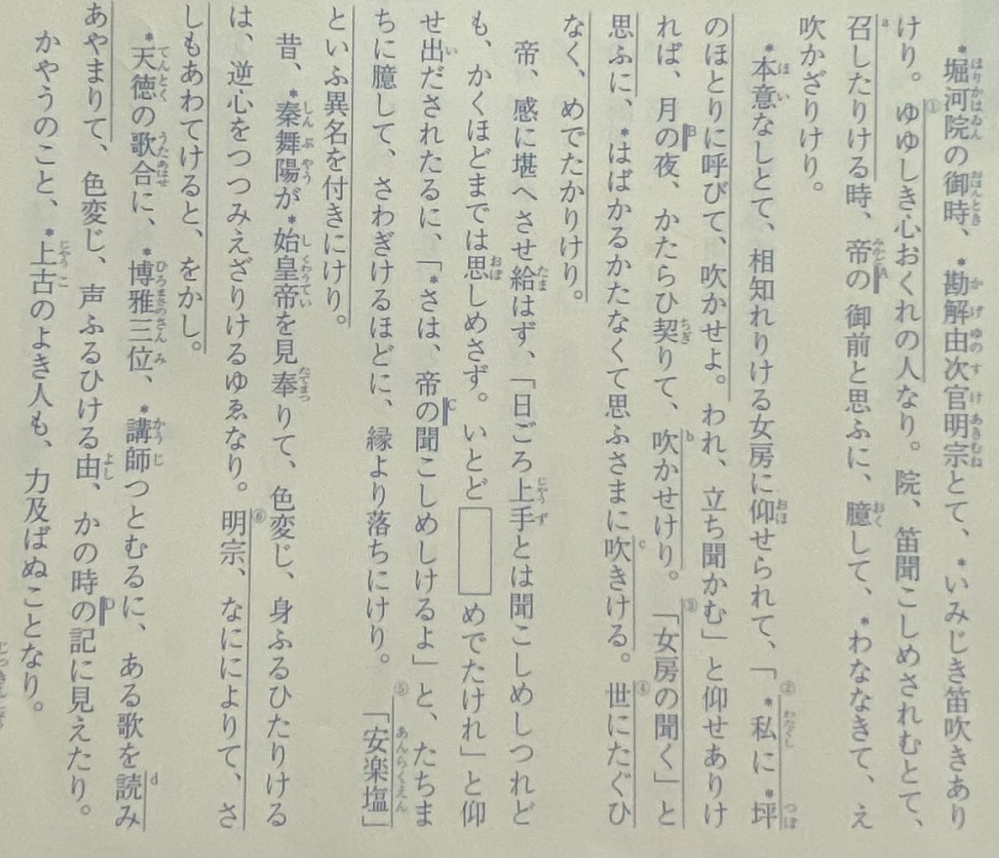 ＊堀河院の御時、＊勘解由次官明宗とて、＊いみじき笛吹きあり
けり。①ゆゆしき心おくれの人なり。院、笛聞こしめされむとて、
a召したりける時、帝のA御前と思ふに、臆して、＊わななきて、え
吹かざりけり。
＊本意なしとて、相知れりける女房に仰せられて、「②＊私に＊坪
のほとりに呼びて、吹かせよ。われ、立ち聞かむ」と仰せありけ
れば、月のB夜、かたらひ契りて、b吹かせけり。③「女房の聞く」と
思ふに、＊はばかるかたなくて思ふさまにc吹きける。④世にたぐひ
なく、めでたかりけり。
帝、感に堪へさせ給はず、「日ごろ上手とは聞こしめしつれど
も、かくほどまでは思しめさず。いとど　　めでたけれ」と仰
せ出だされたるに、「＊さは、帝のC聞こしめしけるよ」と、たちま
ちに臆して、さわぎけるほどに、縁より落ちにけり。⑤「安楽塩」
といふ異名を付きにけり。
昔、＊秦舞陽が＊始皇帝を見奉りて、色変じ、身ふるひたりける
は、逆心をつつみえざりけるゆゑなり。⑥明宗、なにによりて、さ
しもあわてけると、をかし。
＊天徳の歌合に、＊博雅三位、＊講師つとむるに、ある歌をd読み
あやまりて、色変じ、声ふるひける由、かの時のD記に見えたり。
かやうのこと、＊上古のよき人も、力及ばぬことなり。